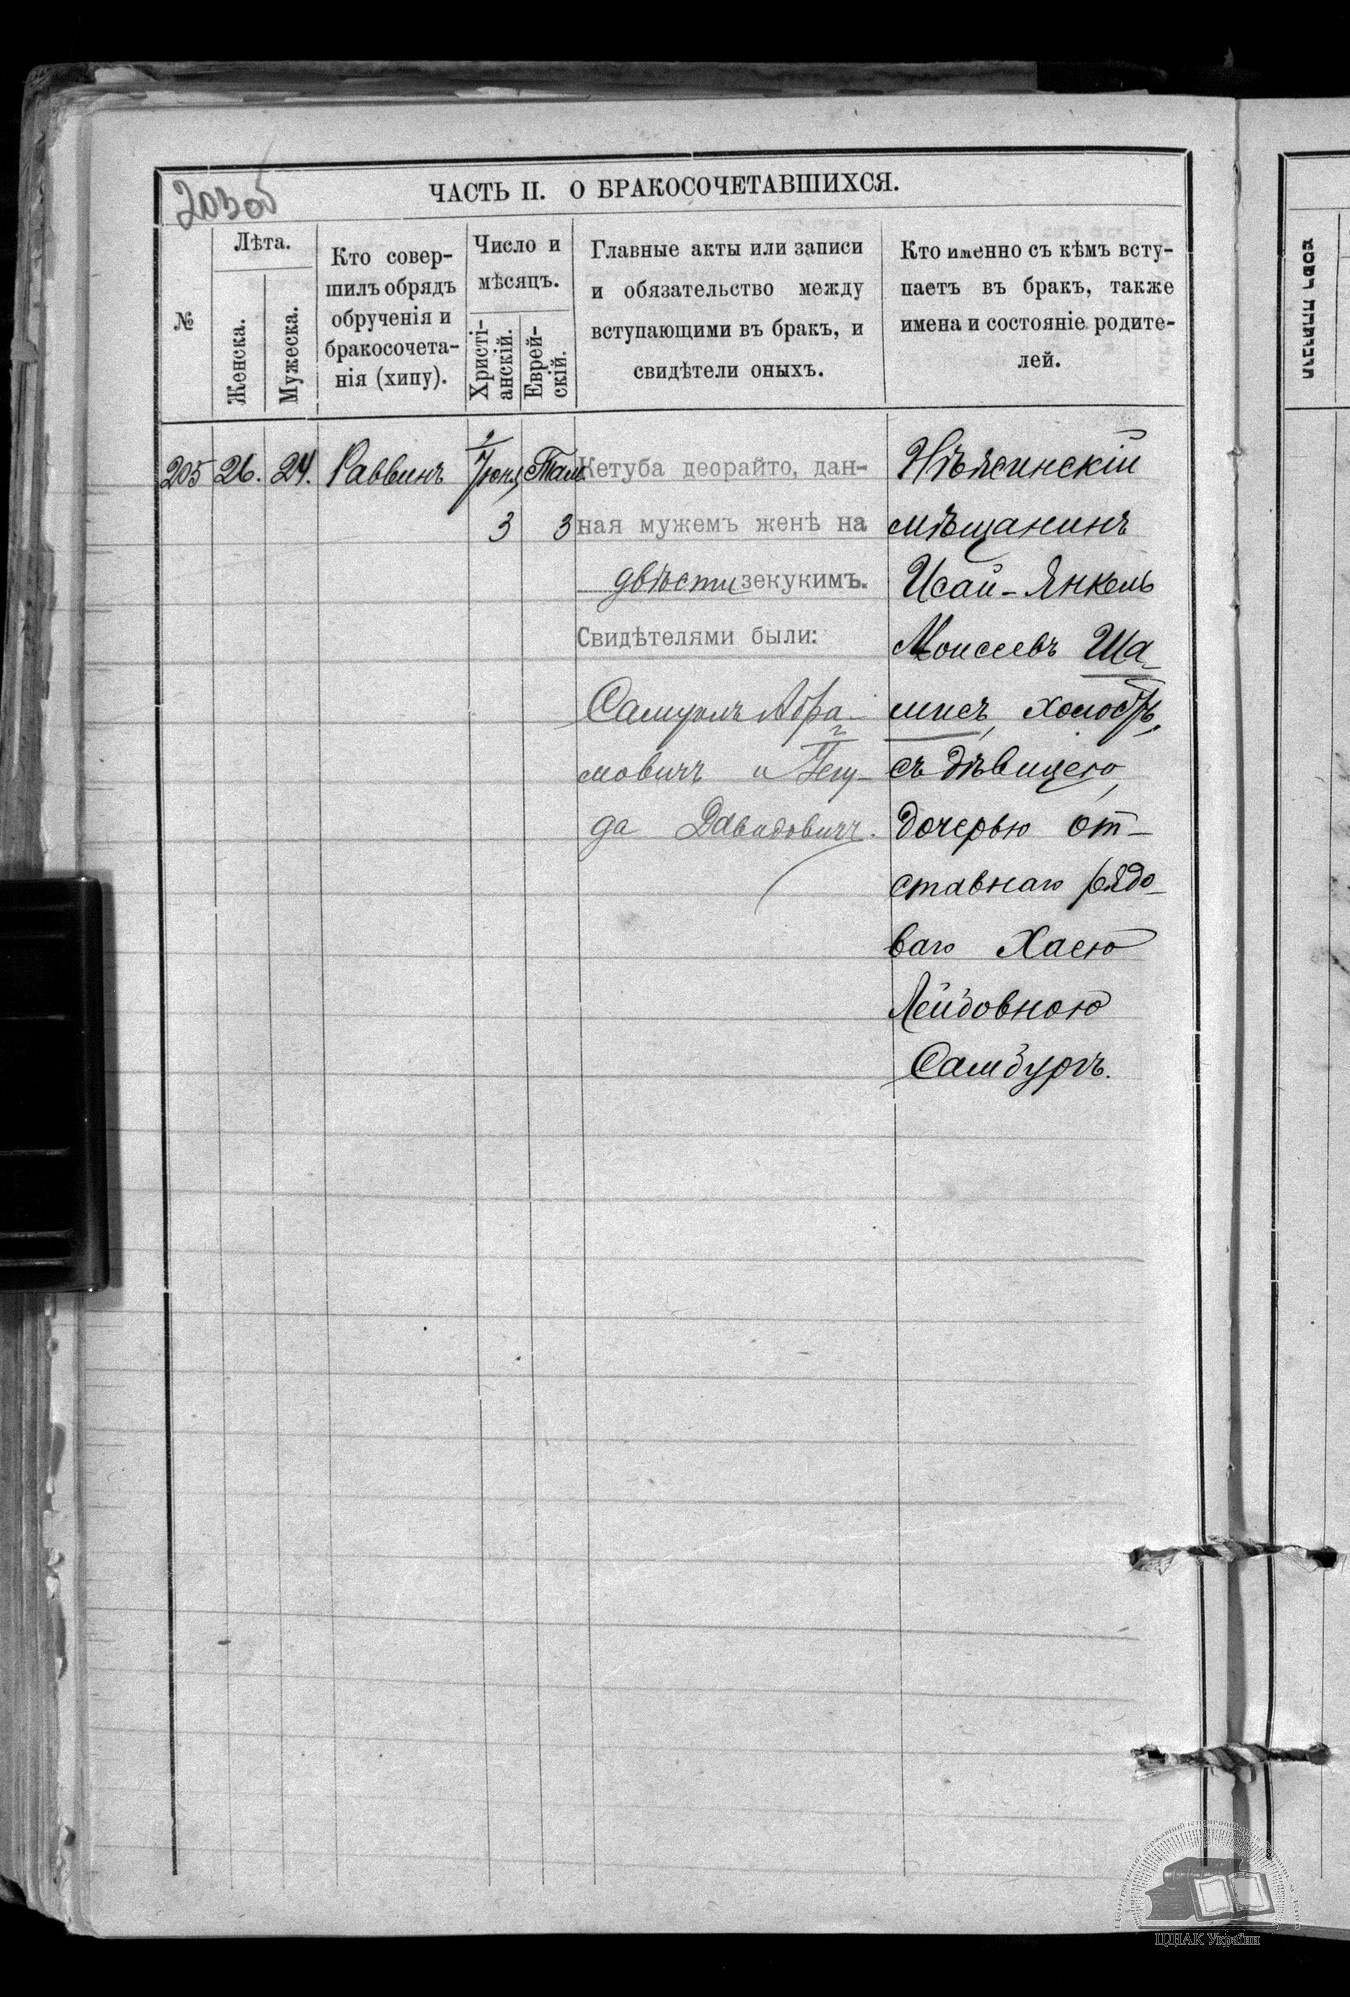 203об
ЧАСТЬ II. О БРАКОСОЧЕТАВШИХСЯ.
№
Лѣта.
Женска.
Мужеска.
Кто совер-
шилъ обрядъ
обрученія и
бракосочета-
нія (хипу).
Число и
мѣсяцъ.
Христі-
анскій.
Еврей-
скій.
Главные акты или записи
и обязательство между
вступающими въ бракъ, и
свидѣтели оныхъ.
Кто именно съ кѣмъ всту-
паетъ въ бракъ, также
имена и состояніе родите-
лей.
205 26. 24. Раввинъ
3 3
Кетуба деорайто, дан-
ная мужемъ женѣ на
двѣсти зекукимъ.
Свидѣтелями были:
Самуилъ Абра-
мовичъ и Іегу-
да Давидовичъ.
Нѣжинскій
мѣщанинъ
Исай-Янкель
Моисеевъ Ша-
мисъ, холостъ,
съ дѣвицею,
дочерью от-
ставнаго рядо-
ваго Хасею
Лейбовною
Самбургъ.
ЦДІАК України